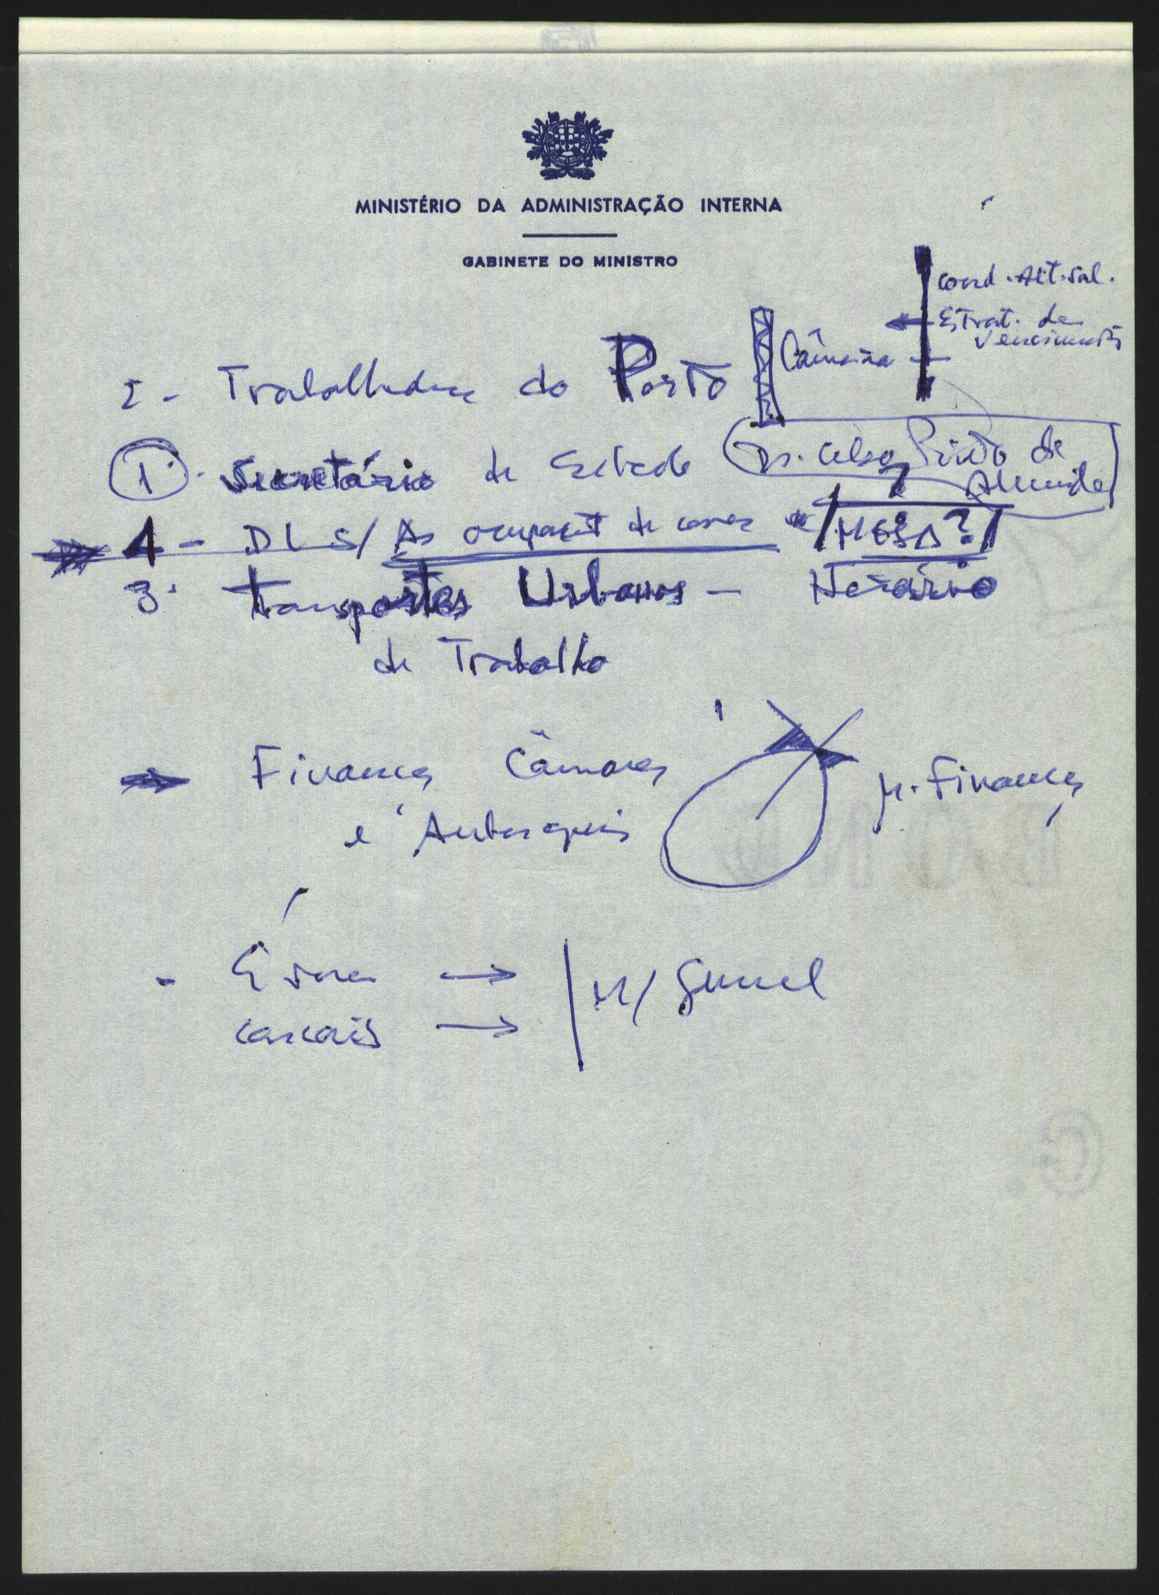 MINISTÉRIO DA ADMINISTRAÇÃO INTERNA
GABINETE DO MINISTRO
Coord. Alt. Sal.
Estrat. de
Vencimentos
2 - Trabalhadores do Porto
Câmara
1. Secretário de Estado
Dr. Celso Pinto de
Almeida
4 - DL S/ As ocupações de casas
MESA?
3. Transportes Urbanos - Horário
de Trabalho
Finanças Câmaras
e Autarquias
M. Finanças
- Évora →
Cascais →
M/